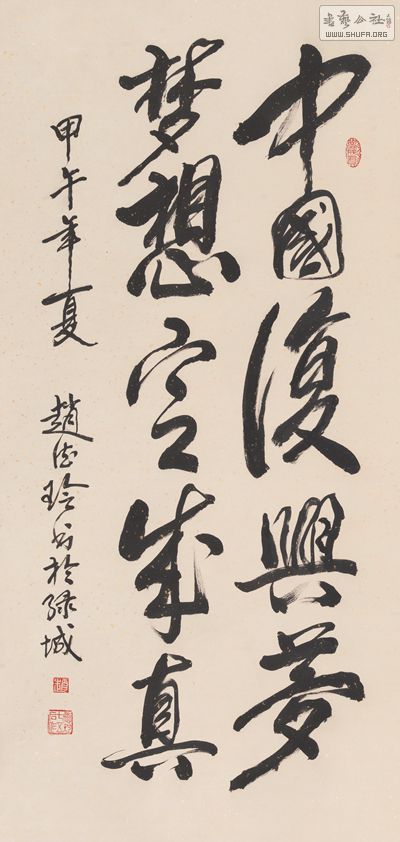 中國復興夢
梦想定成真
甲午年夏 趙德玲书於绿城
書藝公社
WWW.SHUFA.ORG